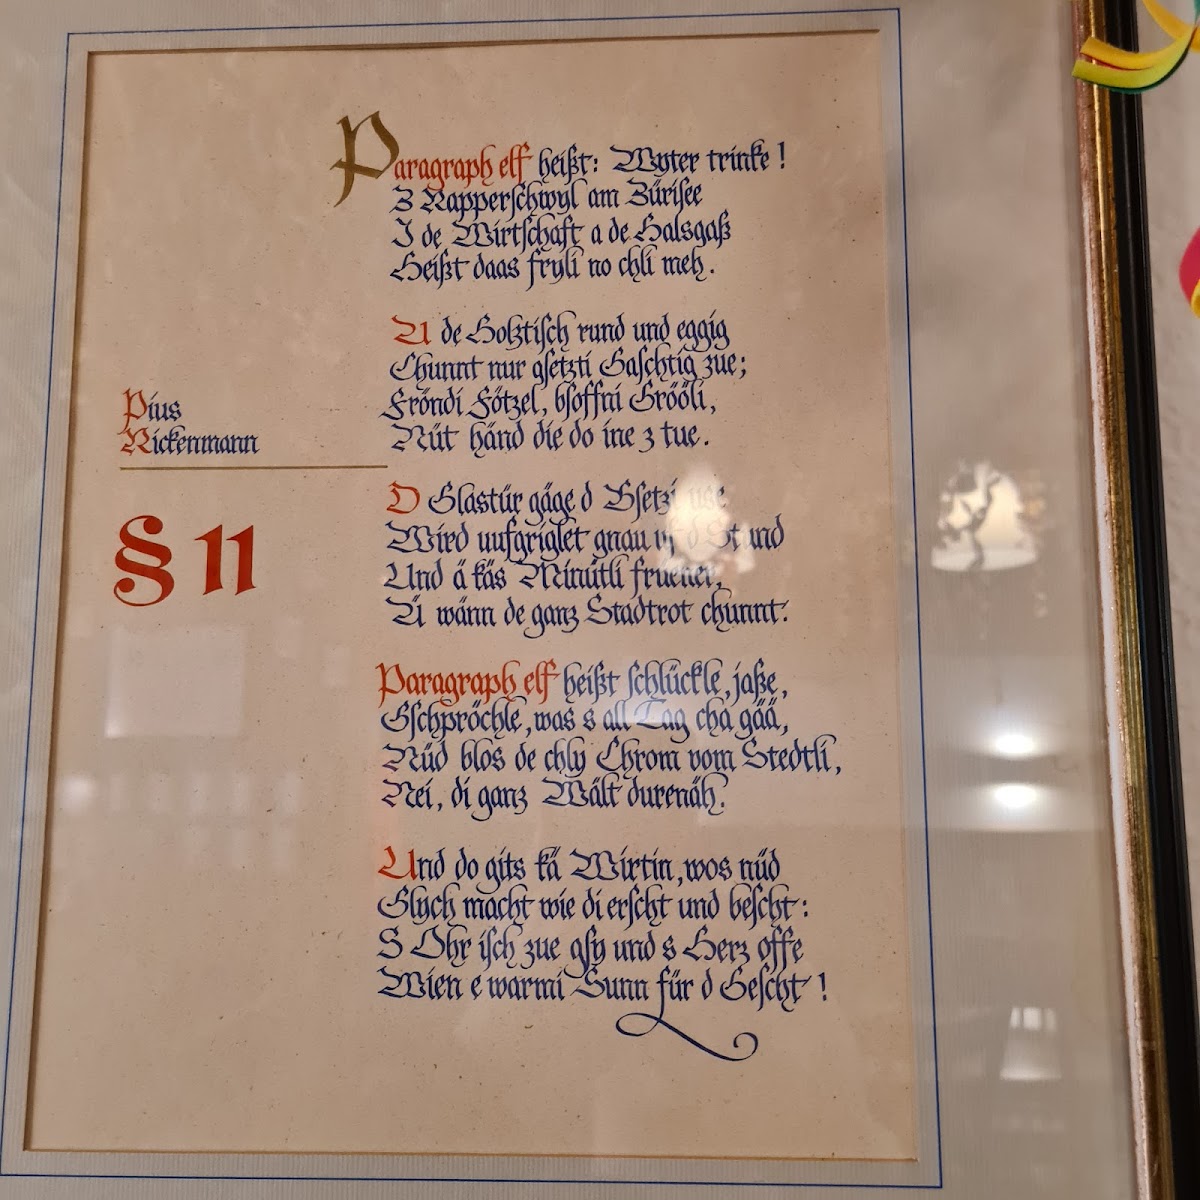 Pius
Rickenmann
§ 11
Paragraph elf heißt: Wyter trinke!
Z Rapperschwyl am Zürisee
I de Wirtschaft a de Halsgaß
Heißt daas fryli no chli meh.
U de Holztisch rund und eggig
Chunnt nur gsetzti Gaschtig zue;
Fröndi Fötzel, bsoffni Grööli,
Nüt händ die do ine z tue.
D Glastür gäge d Bsetzi use
Wird uufgriglet gnau uf d Stund
Und ä käs Minütli frueher,
Ü wänn de ganz Stadtrot chunnt.
Paragraph elf heißt schlückle, jaße,
Gschpröchle, was s all Tag cha gää,
Nüd blos de chly Chrom vom Stedtli,
Nei, di ganz Wält durenäh.
Und do gits kä Wirtin, wos nüd
Glych macht wie di erscht und bescht:
S Ohr isch zue gsy und s Herz offe
Wien e warmi Sunn für d Gescht!